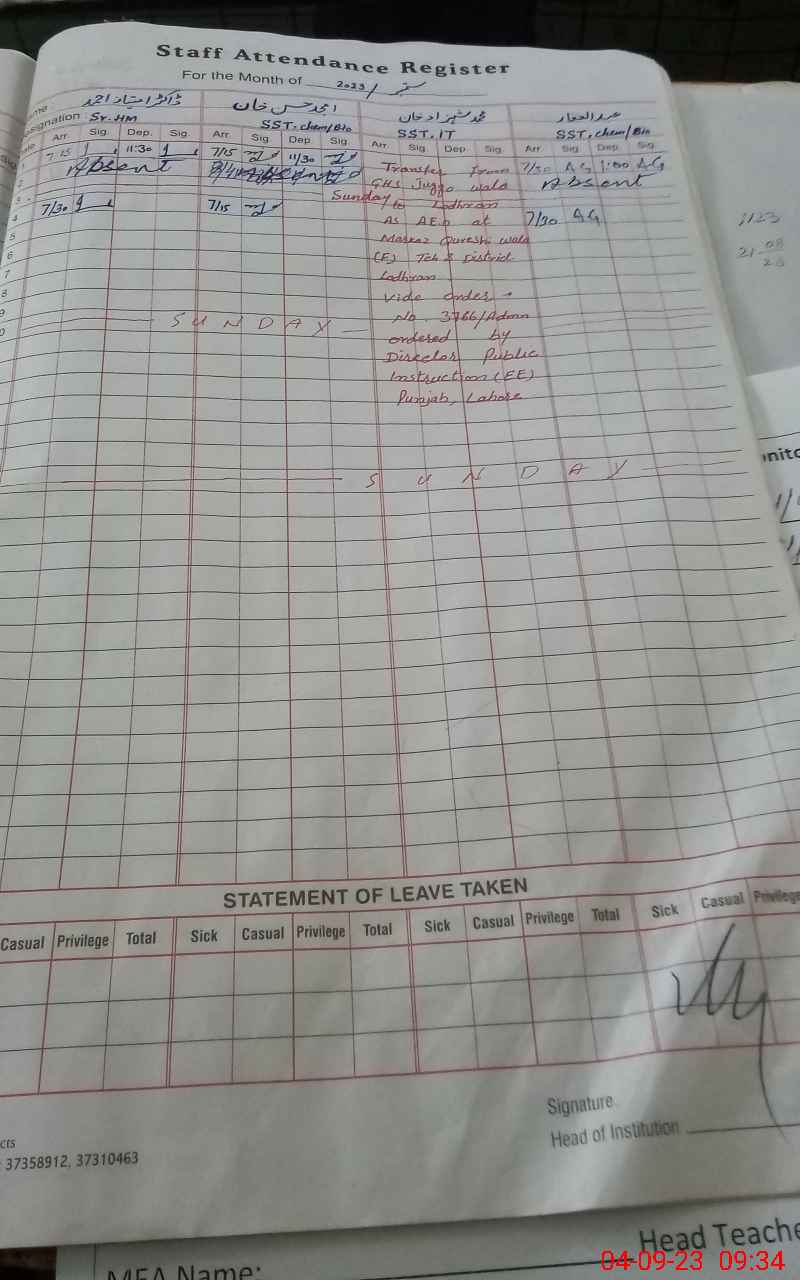 Staff Attendance Register
For the Month of ستمبر / 2023
ڈاکٹر امتیاز احمد امجد حسن خان محمد شہزاد خان عبدالغفار
Designation Sr. HM SST. chem/Bio SST. IT SST. chem/Bio
Arr. Sig. Dep. Sig. Arr. Sig. Dep. Sig. Arr. Sig. Dep. Sig. Arr. Sig. Dep. Sig.
1 7:15 11:30 7/15 11/30 Transfer from 7/30 AG 1:00 AG
2 Absent GHS Juggo wala Absent
3 Sunday to Lodhran
4 7/30 7/15 As AEO at 7/30 AG
5 Markaz Qureshi wala
6 (E) Teh & District
7 Lodhran
8 Vide order
9 No. 3766/Admn
SUNDAY
ordered by
Director Public
Instruction (EE)
Punjab, Lahore
SUNDAY
STATEMENT OF LEAVE TAKEN
Casual Privilege Total Sick Casual Privilege Total Sick Casual Privilege Total Sick Casual Privilege
Signature
Head of Institution
37358912, 37310463
1123
21-08
23
Head Teache
MEA Name:
04-09-23 09:34